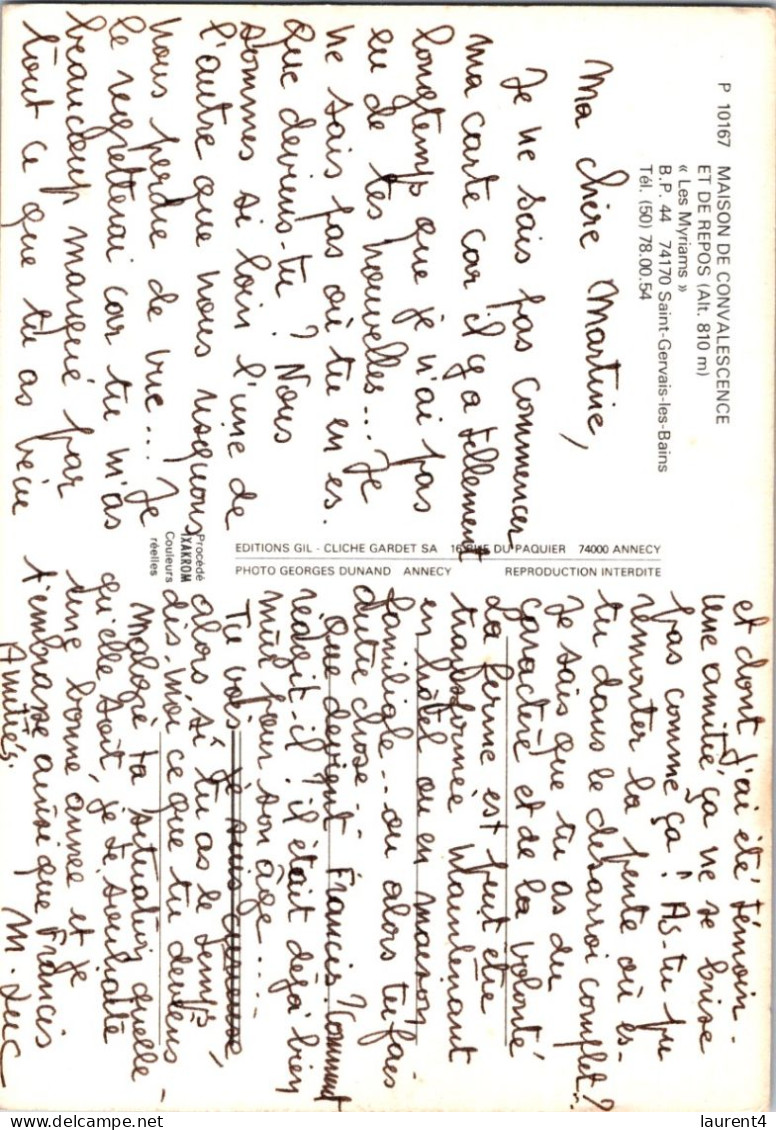 P 10167 MAISON DE CONVALESCENCE
ET DE REPOS (Alt. 810 m)
« Les Myriams »
B.P. 44 74170 Saint-Gervais-les-Bains
Tél. (50) 78.00.54
Ma chère Martine,
Je ne sais pas commencer
ma carte car il y a tellement
longtemps que je n'ai pas
eu de tes nouvelles... Je
ne sais pas où tu en es.
Que deviens-tu ? Nous
sommes si loin l'une de
l'autre que nous risquons
nous perdre de vue... Je
le regretterai car tu m'as
beaucoup marqué par
tout ce que tu as vécu
EDITIONS GIL - CLICHE GARDET SA 16 RUE DU PAQUIER 74000 ANNECY
PHOTO GEORGES DUNAND ANNECY REPRODUCTION INTERDITE
Procédé
IXAKROM
Couleurs
réelles
et dont j'ai été témoin.
Une amitié ça ne se brise
pas comme ça ! As-tu pu
remonter la pente où es-
tu dans le désarroi complet ?
Je sais que tu as du
caractère et de la volonté
La ferme est peut être
transformée maintenant
en hôtel ou en maison
familiale... ou alors tu fais
autre chose -
Que devient Francis ? Comment
réagit-il ? il était déjà bien
mûr pour son âge....
Tu vois je suis curieuse,
alors si tu as le temps
dis-moi ce que tu deviens
Malgré ta situation quelle-
qu'elle soit, je te souhaite
une bonne année et je
t'embrasse ainsi que Francis
Amitiés.
M. Luc
laurent4